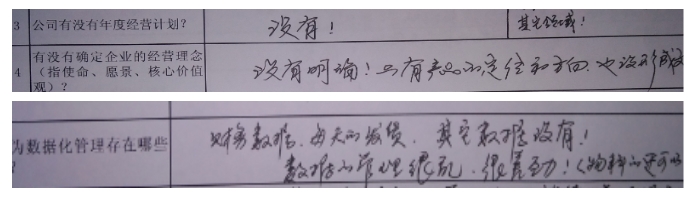 3 公司有没有年度经营计划? 没有! 其它领域!
有没有确定企业的经营理念
4 (指使命、愿景、核心价值 没有明确!只有产品的定位和方向.也没形成
观)?
为数据化管理存在哪些 财务数据.每天的发货.其它数据没有!
数据的管理很乱.很差劲!(物料的还可以